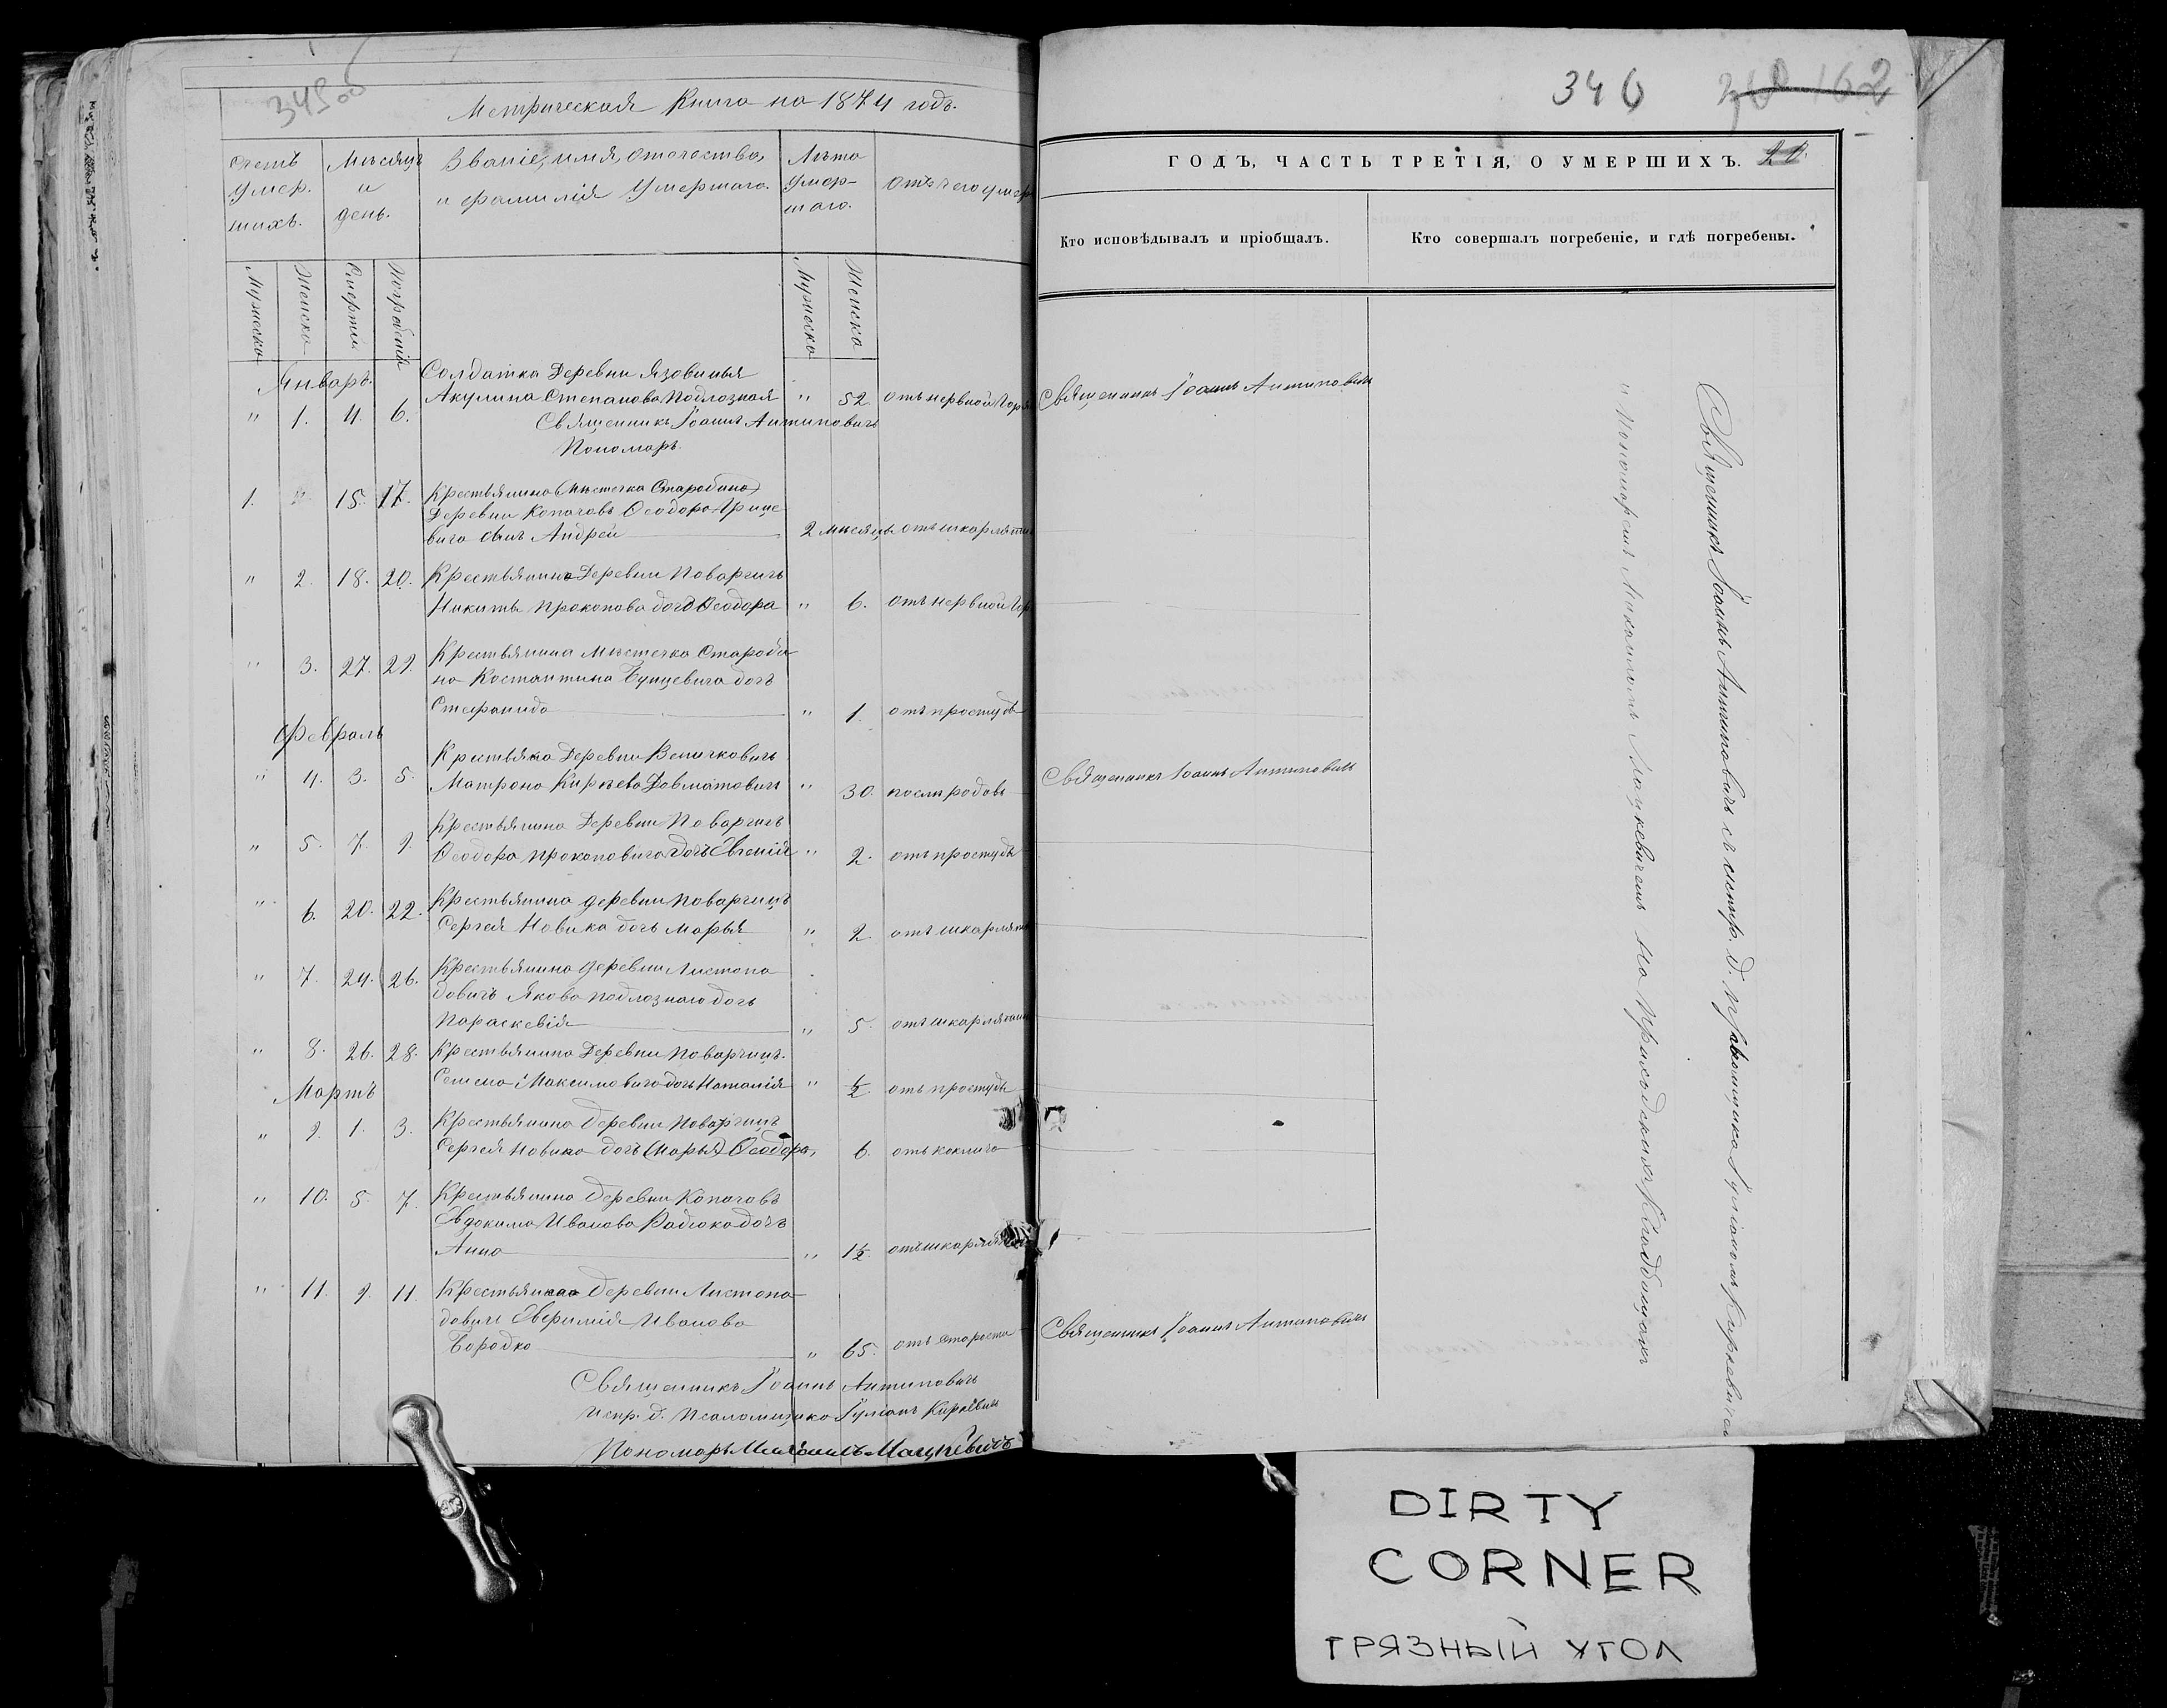 Метрическая Книга на 1874 годъ.
Счетъ умер-шихъ.
Мѣсяцъ и день.
Званіе, имя, отечество, и фамилія умершаго.
Лѣта умер-шаго.
Отъ чего умеръ
Мужеска
Женска
Смерти
Погребенія
Мужеска
Женска
Январь.
Солдатка Деревни Язовинья
" 1. 4. 6. Акулина Степанова Подлозная " 52. отъ нервной Горя
Священникъ Іоаннъ Антиповичъ
Пономарь.
1. " 15. 17. Крестьянина (Мѣстечка Старобина)
Деревни Копачовъ Ѳеодора Грице
вича сынъ Андрей 2 мѣсяцъ отъ шкарлятин
" 2. 18. 20. Крестьянина Деревни Поварчичъ
Никиты Прокопова дочь Ѳеодора " 6. отъ нервной Гор
" 3. 27. 29. Крестьянина Мѣстечка Староби
на Костантина Бунцевича дочь
Стефанида " 1. отъ простуды
Февраль
Крестьянка Деревни Величковичъ
" 4. 3. 5. Матрона Киреева Довматовичъ " 30. послѣ родовъ
" 5. 7. 9. Крестьянина Деревни Поварчичъ
Ѳеодора Прокоповича дочь Евгенія " 2. отъ простуды
" 6. 20. 22. Крестьянина деревни Поварчичъ
Сергея Новика дочь Марья " 2 отъ шкарлят
" 7. 24. 26. Крестьянина деревни Листопа
довичъ Якова Подлознаго дочь
Параскевія " 5. отъ шкарлятин
" 8. 26. 28. Крестьянина Деревни Поварчичъ.
Семена Максимовича дочь Наталія " ½ отъ простуды
Мартъ
" 9. 1. 3. Крестьянина Деревни Поварчичъ
Сергея Новика дочь (Марья) Ѳеодора, 6. отъ коклюша
" 10. 5. 7. Крестьянина Деревни Копачовъ
Евдокима Иванова Радюка дочь
Анна " 1½. отъ шкарлятин
" 11. 9. 11. Крестьянка Деревни Листопа
довичъ Евфимія Иванова
Бородко " 65. отъ старости
Священникъ Іоаннъ Антиповичъ
Испр. д. Псаломщика Іуліанъ Киркевичъ
Пономарь Михаилъ Мацкевичъ
346
162
ГОДЪ, ЧАСТЬ ТРЕТІЯ, О УМЕРШИХЪ.
Кто исповѣдывалъ и пріобщалъ.
Кто совершалъ погребеніе, и гдѣ погребены.
Священникъ Іоаннъ Антиповичъ
Священникъ Іоаннъ Антиповичъ
Священникъ Іоаннъ Антиповичъ
Священникъ Іоаннъ Антиповичъ съ испр. д. псаломщика Іуліаномъ Киркевичемъ
и Пономаремъ Михаиломъ Мацкевичемъ на приходскихъ Кладбищахъ
DIRTY
CORNER
ГРЯЗНЫЙ УГОЛ